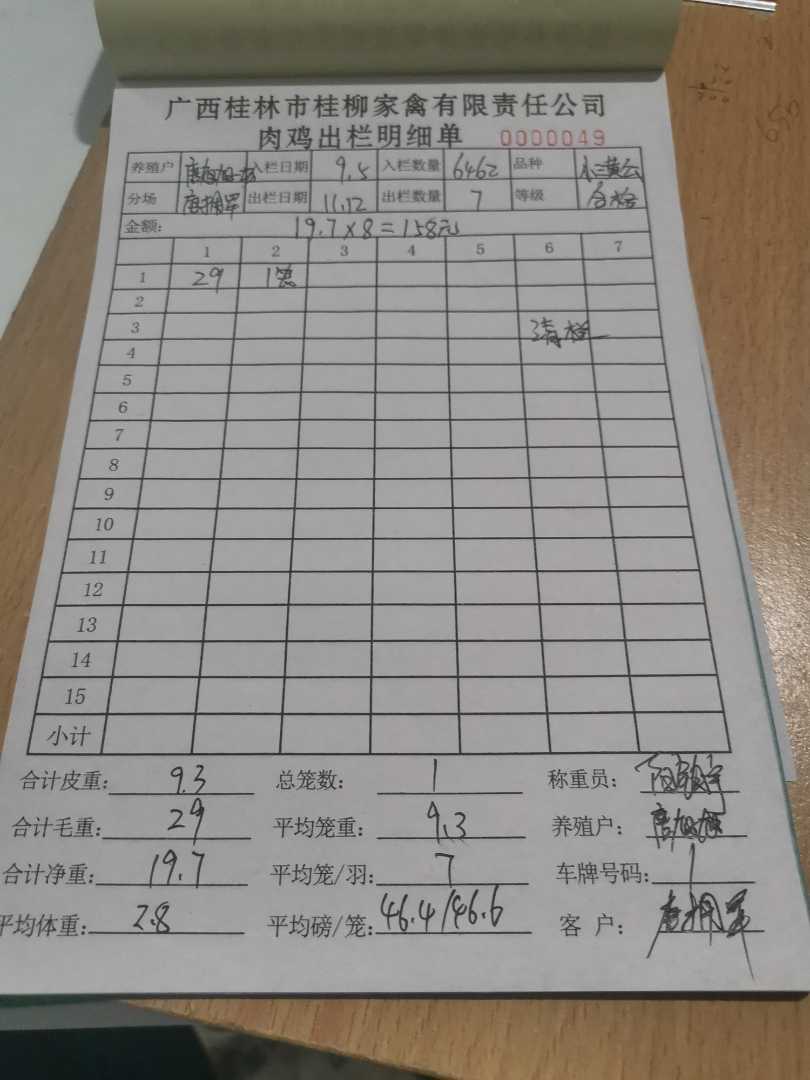 广西桂林市桂柳家禽有限责任公司
肉鸡出栏明细单 0000049
养殖户 入栏日期 9.5 入栏数量 6462 品种
分场 出栏日期 11.12 出栏数量 7 等级 合格
金额: 19.7×8=158元
1 2 3 4 5 6 7
1 29 1笼
2
3 清栏
4
5
6
7
8
9
10
11
12
13
14
15
小计
合计皮重: 9.3 总笼数: 1 称重员:
合计毛重: 29 平均笼重: 9.3 养殖户:
合计净重: 19.7 平均笼/羽: 7 车牌号码: 1
平均体重: 2.8 平均磅/笼: 46.4/46.6 客 户: